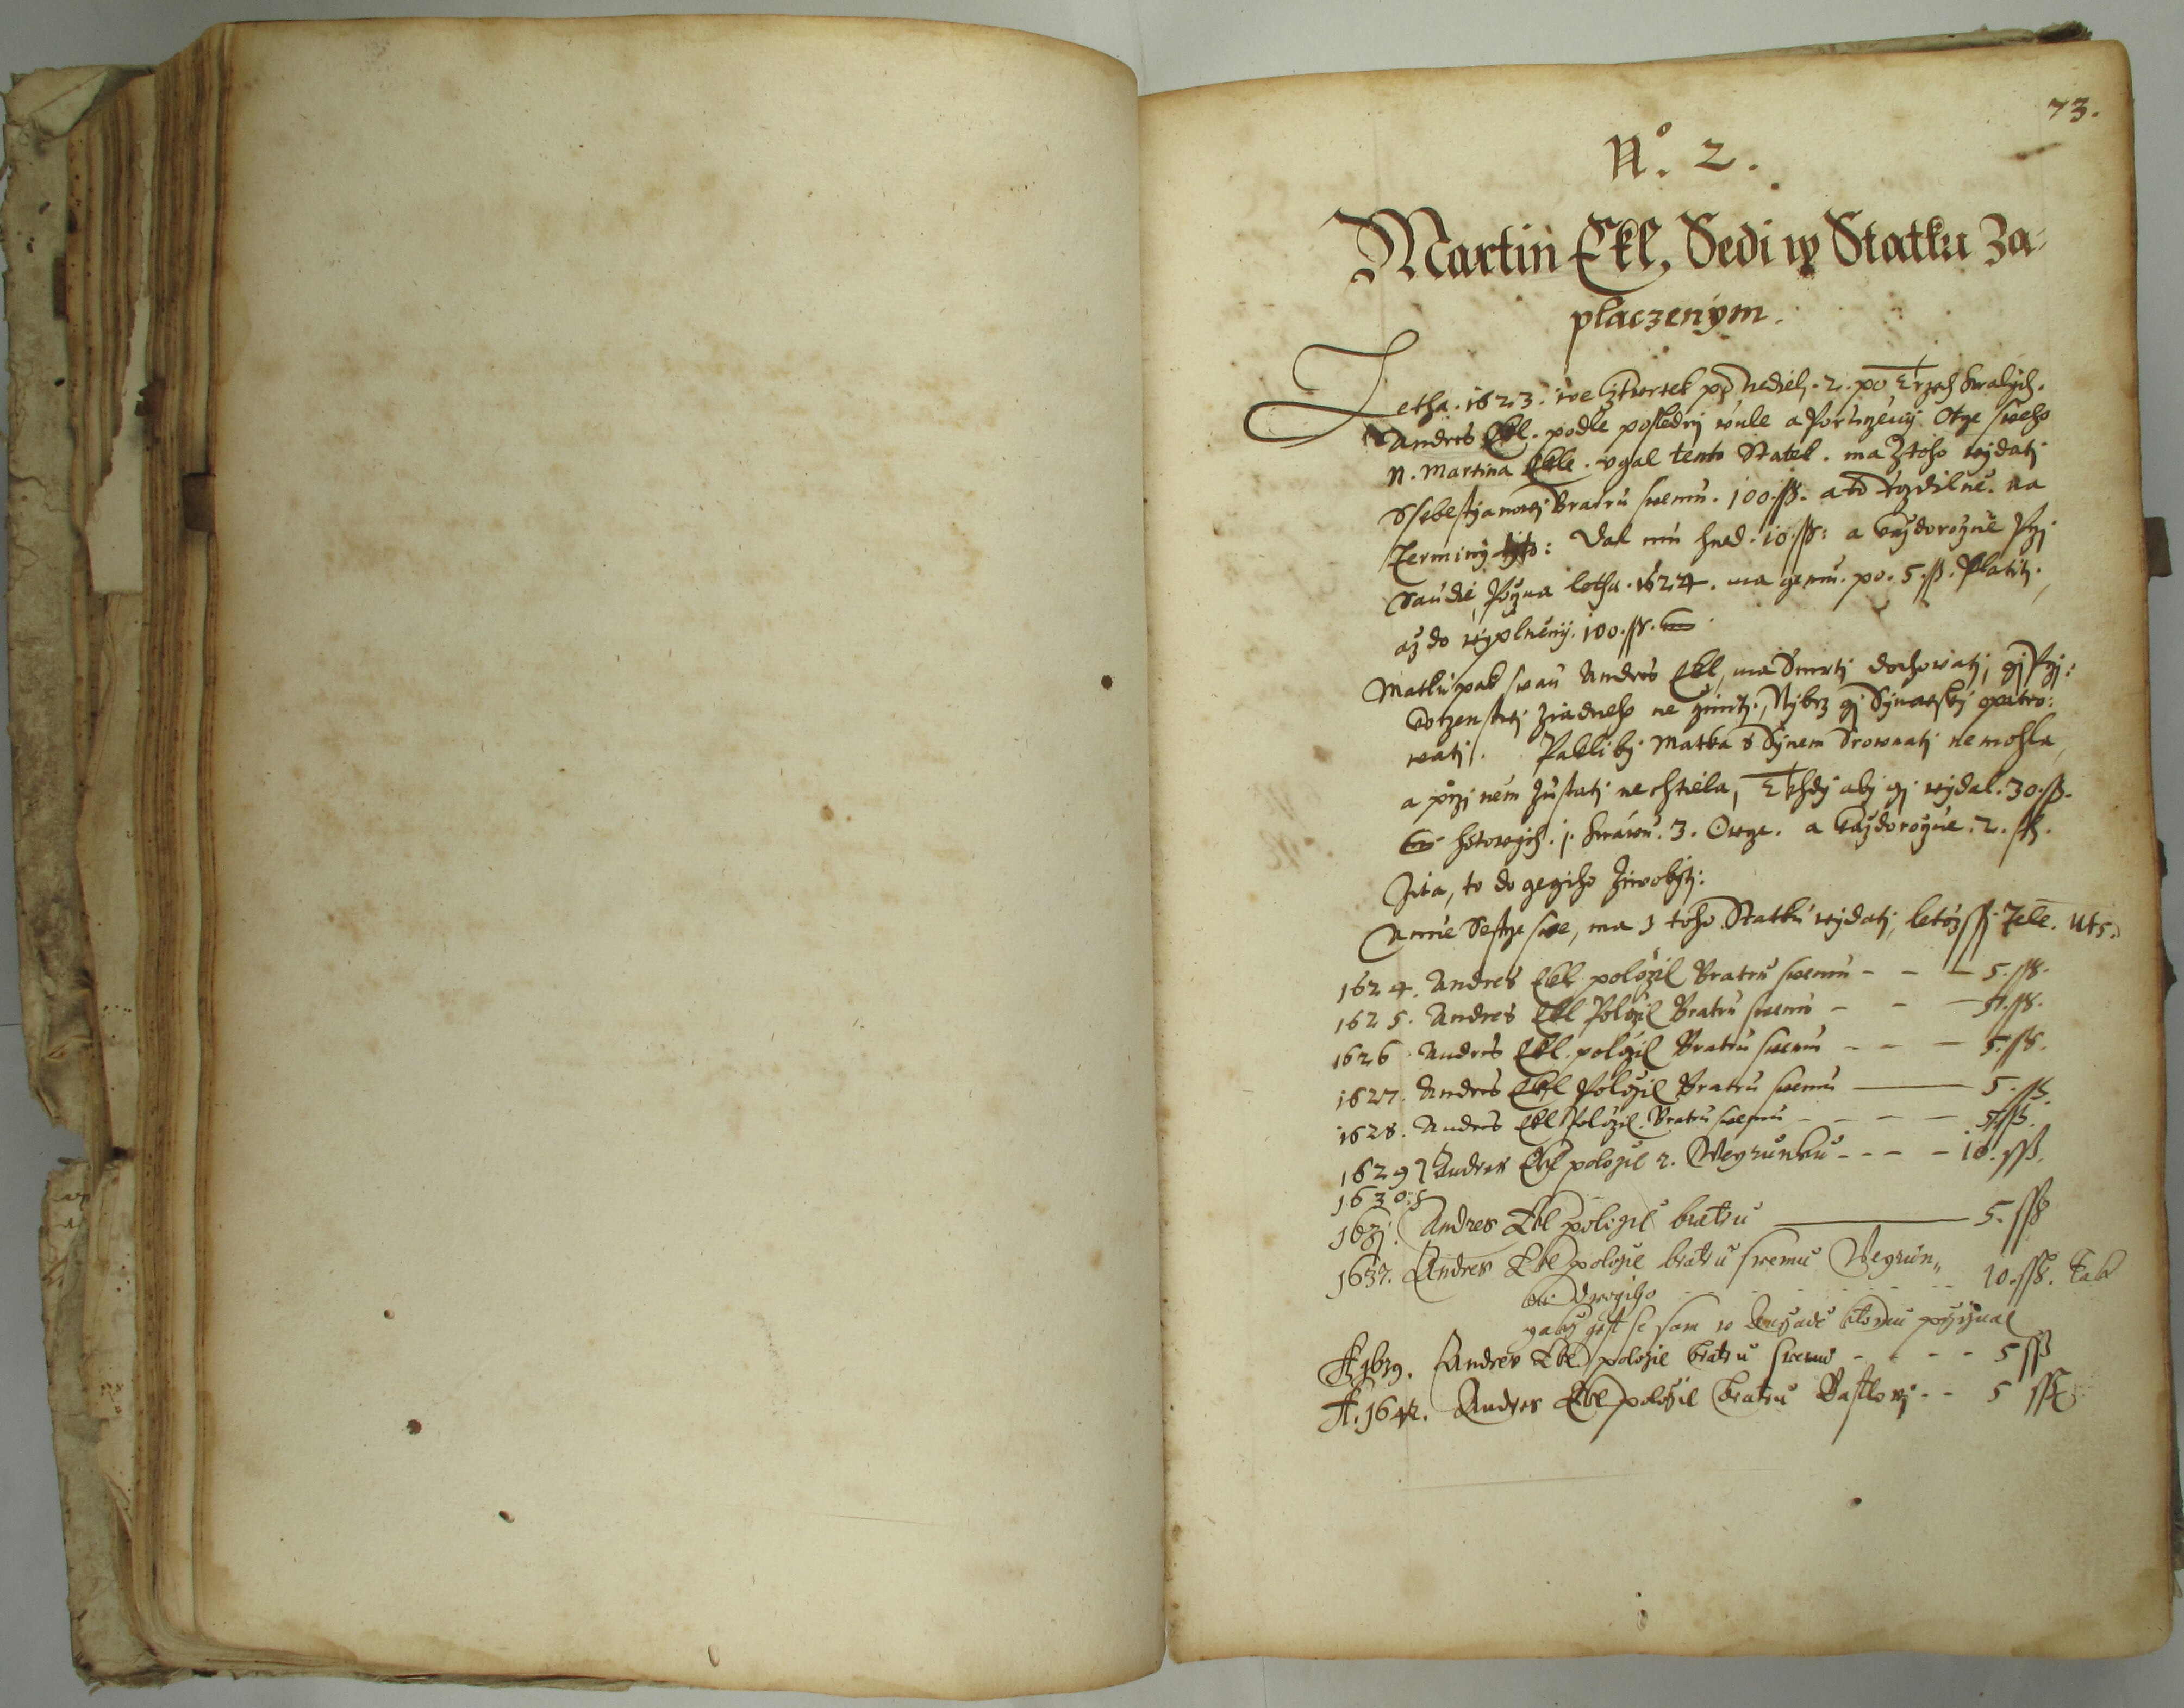 73.
No. 2.
Martin Ekl, Sedi w Statku Za=
placzenym.
Letha. 1623. we cztwrtek po nedieli. 2. po Trzech Kralych.
Andres Ekl. podle posledny wule a Poruczeny Otcze sweho
N. Martina Ekle. ugal tento Statek. ma z toho wydati
Ssebestyanowi Bratru swemu. 100. ss. a to rozdilne. na
Terminy tyto: Dal mu hned. 10. ss: a každorožne Przi
Saudie Pocžna letha. 1624. ma gemu. po. 5. ss. Platiti.
až do wyplneny. 100. ss.
Matku pak swau Andres Ekl, ma Smrti dochowati, gj Przi:
žiadneho ne cziniti, Nybrz gj Synowsky opatro:
wati. Pakliby Matka s Synem Srownati nemohla,
a przi nem zustati nechtiela, Tehdy aby gj wydal. 30. ss.
hotowych. j. krawu. 3. Owcze. a každorožne. 2.
Žita, to do gegiho žiwobyti:
Annie Sestrze swe, ma z toho Statku wydati, Tele.
1624. Andres Ekl položil Bratru swemu - - - 5. ss.
1625. Andres Ekl Položil Bratru swemu - - - 5. ss.
1626. Andres Ekl. položil Bratru swemu - - - 5. ss.
1627. Andres Ekl Položil Bratru swemu - 5. ss.
1628. Andres Ekl Položil. Bratru swemu - - - - 5. ss.
1629 } Andres Ekl položil 2. Weyrunku - - - - 10. ss.
1630: }
163j. Andres Ekl položil bratru - 5. ss
1637. Andres Ekl položil bratru swemu Weyrun„
ku dwogiho - - - - - 10. ss. Tak
yakž gest se sam w k tomu przyznal
A. 1639. Andres Ekl položil bratru swemu - - - - 5 ss
A. 1642. Andres Ekl položil bratru - - 5 ss